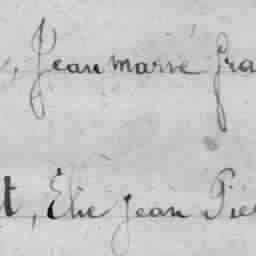 , Jean marie Fra
t, Élie Jean Pie